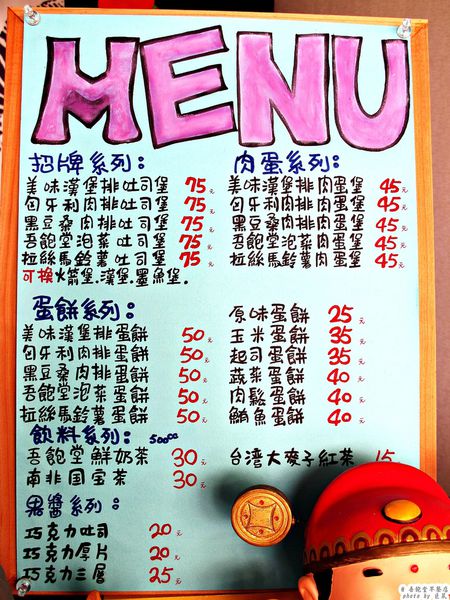 MENU
招牌系列:
美味漢堡排吐司堡 75元
匈牙利肉排吐司堡 75元
黑豆桑肉排吐司堡 75元
吾飽堂泡菜吐司堡 75元
拉絲馬鈴薯吐司堡 75元
可換火箭堡.漢堡.墨魚堡.
肉蛋系列:
美味漢堡排肉蛋堡 45元
匈牙利肉排肉蛋堡 45元
黑豆桑肉排肉蛋堡 45元
吾飽堂泡菜肉蛋堡 45元
拉絲馬鈴薯肉蛋堡 45元
蛋餅系列:
美味漢堡排蛋餅 50元
匈牙利肉排蛋餅 50元
黑豆桑肉排蛋餅 50元
吾飽堂泡菜蛋餅 50元
拉絲馬鈴薯蛋餅 50元
原味蛋餅 25元
玉米蛋餅 35元
起司蛋餅 35元
蔬菜蛋餅 40元
肉鬆蛋餅 40元
鮪魚蛋餅 40元
飲料系列: 500cc
吾飽堂鮮奶茶 30元
南非国宝茶 30元
台湾大麥子紅茶 15
果醬系列
巧克力吐司 20元
巧克力厚片 20元
巧克力三層 25元
# 吾飽堂早餐店
photo by